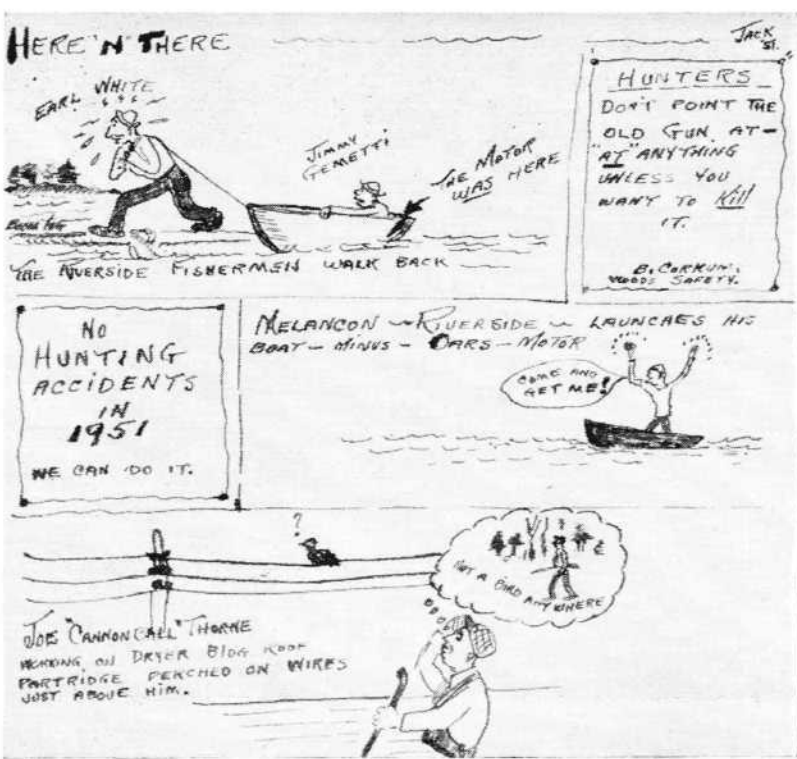 HERE 'N' THERE
JACK
ST.
EARL WHITE
JIMMY
GEMETTI
THE MOTOR
WAS HERE
THE RIVERSIDE FISHERMEN WALK BACK
HUNTERS
DON'T POINT THE
OLD GUN AT-
"AT" ANYTHING
UNLESS YOU
WANT TO Kill
IT.
B. CORKUM.
WOODS SAFETY.
NO
HUNTING
ACCIDENTS
IN
1951
WE CAN DO IT.
MELANCON - RIVERSIDE - LAUNCHES HIS
BOAT - MINUS - OARS - MOTOR
COME AND
GET ME!
?
NOT A BIRD ANYWHERE
JOE "CANNONBALL" THORNE
WORKING ON DRYER BLDG ROOF
PARTRIDGE PERCHED ON WIRES
JUST ABOVE HIM.